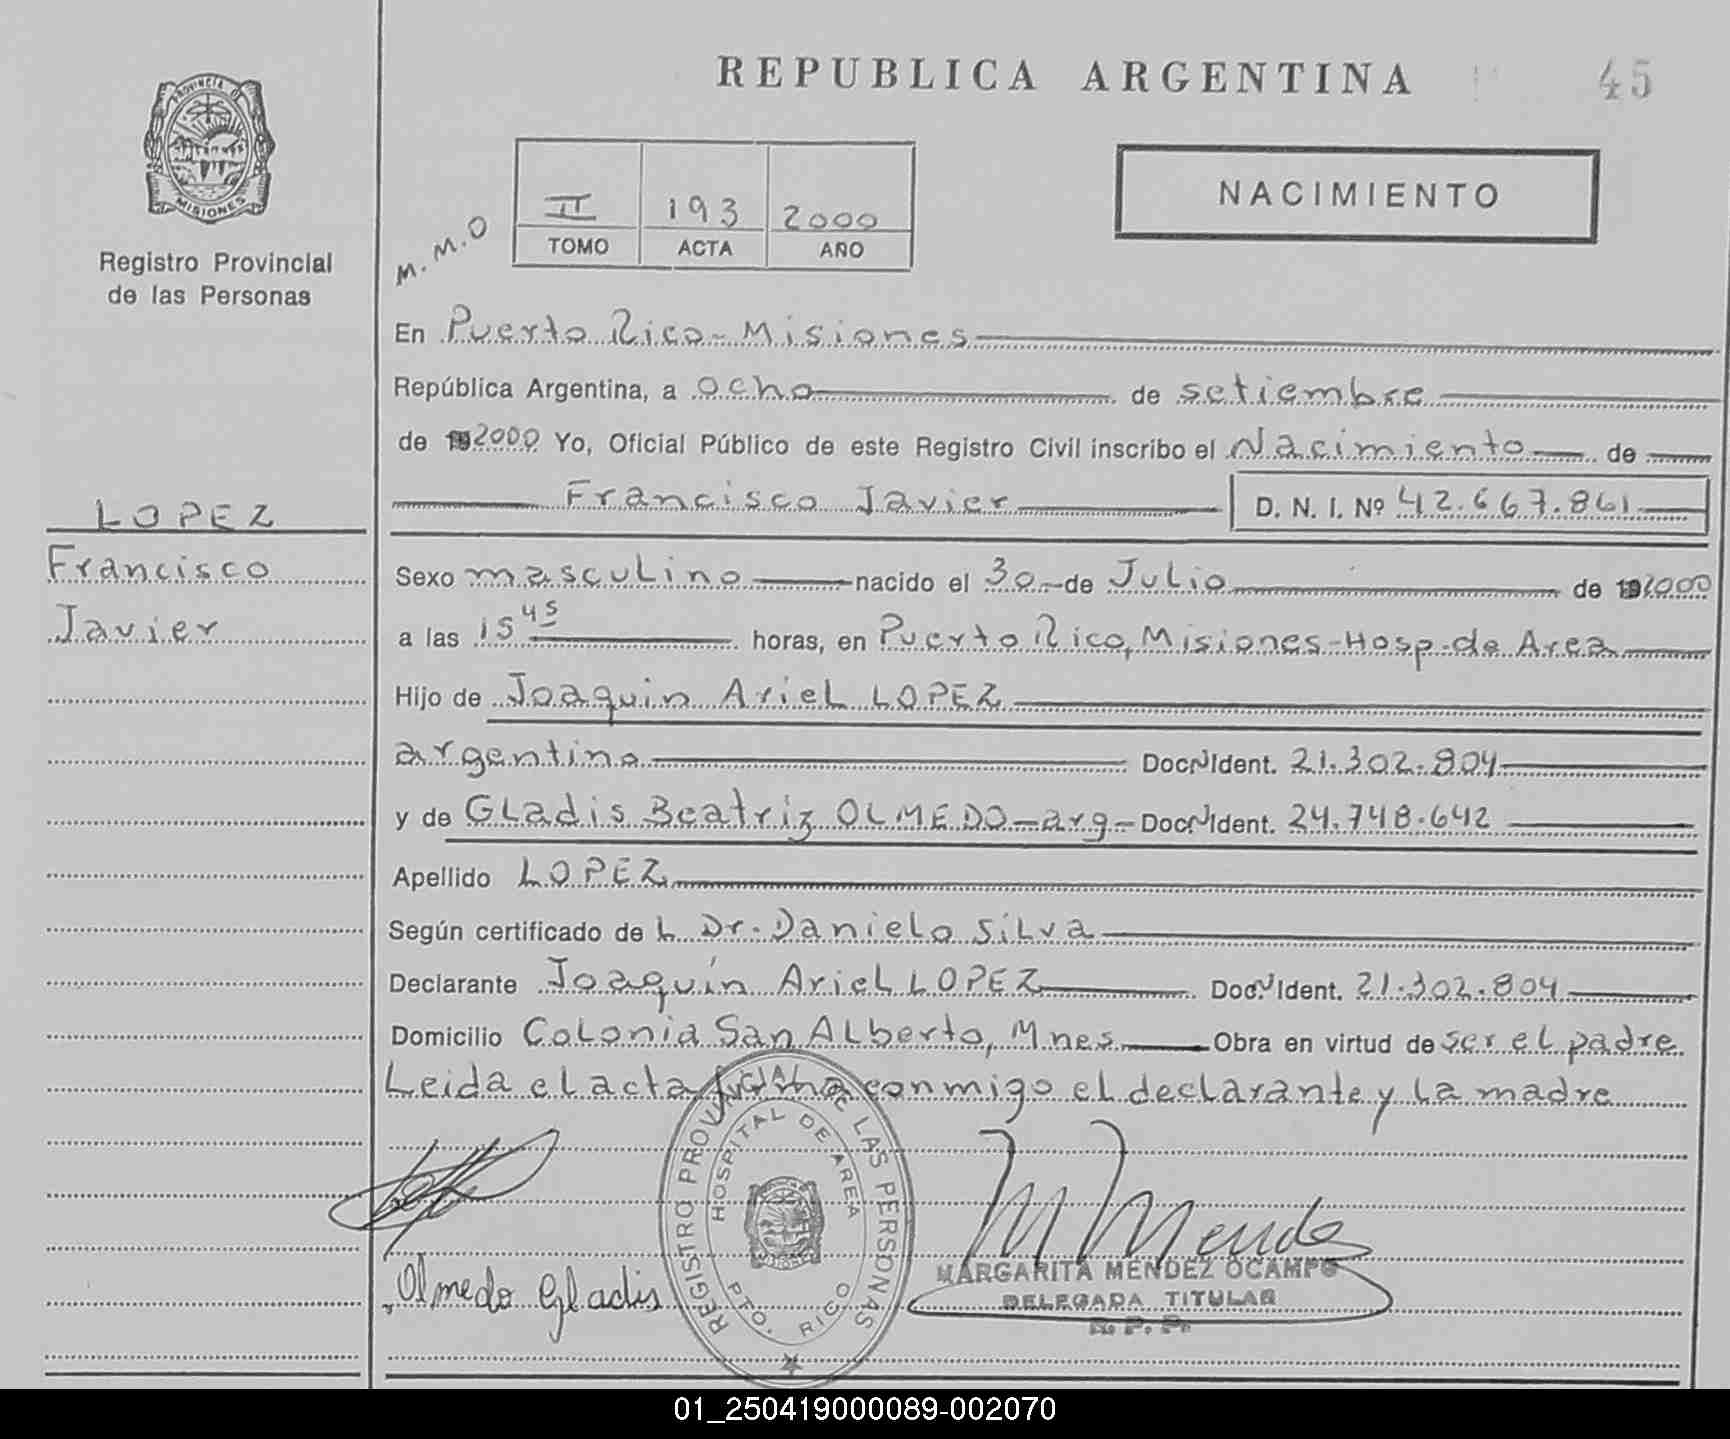 REPUBLICA ARGENTINA
45
PROVINCIA D
MISIONES
Registro Provincial
de las Personas
M.M.O
II 193 2000
TOMO ACTA AÑO
NACIMIENTO
En Puerto Rico - Misiones
República Argentina, a ocho de setiembre
de 2000 Yo, Oficial Público de este Registro Civil inscribo el Nacimiento de
Francisco Javier D. N. I. Nº 42.667.861
LOPEZ
Francisco
Javier
Sexo masculino nacido el 30 de Julio de 2000
a las 15 45 horas, en Puerto Rico, Misiones - Hosp. de Area
Hijo de Joaquin Ariel LOPEZ
argentino Doc. N Ident. 21.302.804
y de Gladis Beatriz OLMEDO - arg - Doc. N Ident. 24.748.642
Apellido LOPEZ
Según certificado de L Dr. Danielo Silva
Declarante Joaquín Ariel LOPEZ Doc. N Ident. 21.302.804
Domicilio Colonia San Alberto, Mnes Obra en virtud de ser el padre
Leida el acta firma conmigo el declarante y la madre
REGISTRO PROVINCIAL DE LAS PERSONAS
HOSPITAL DE AREA
PTO. RICO
M Mende
MARGARITA MENDEZ OCAMPO
DELEGADA TITULAR
R. P. P.
Olmedo Gladis
01_250419000089-002070